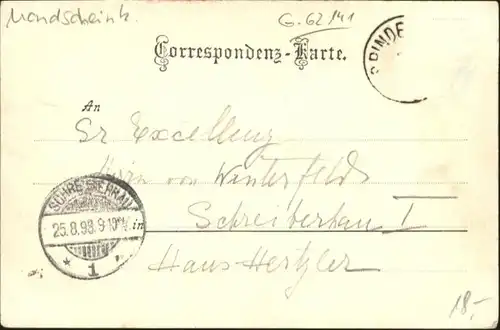 Mondscheink.
G. 62141
Correspondenz-Karte.
SPINDE
An
Sr Excellenz
Herrn von Winterfeld
Schreiberhau I
in
Haus Hertzler
SCHREIBERHAU
25.8.98.9-10V.
* 1 *
18,-